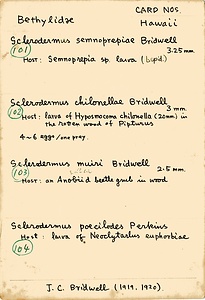 CARD NOS.
Bethylidae Hawaii
Sclerodermus semnoprepiae Bridwell
101 3.25 mm
Host: Semnoprepia sp. larva (
Sclerodermus chilonellae Bridwell
102 3 mm
Host: larva of Hyposmocoma chilonella (20mm) in
the rotten wood of Pipturus
4~6 eggs/one prey.
Sclerodermus muiri Bridwell
103 2.5 mm
Host: an Anobiid beetle grub in wood
Sclerodermus poecilodes Perkins
Host: larva of Neoclytarlus euphorbiae
104
J. C. Bridwell (1919, 1920).